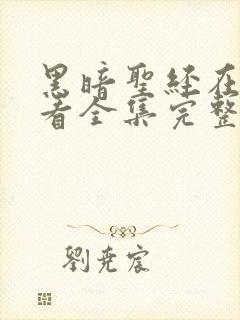 黑暗聖經在
看全集完整
劉堯宸